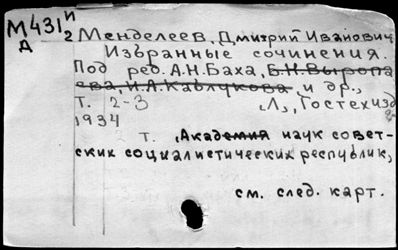 М431 И2 Менделеев, Дмитрий Иванович
Д Избранные сочинения.
Под ред. А.Н. Баха, Б.Н. Выропа
ева, И.А. Каблукова и др.,
т. 2-3 Л., Гостехизд
1934
т. (Академия наук совет-
ских социалистических республик,
см. след. карт.